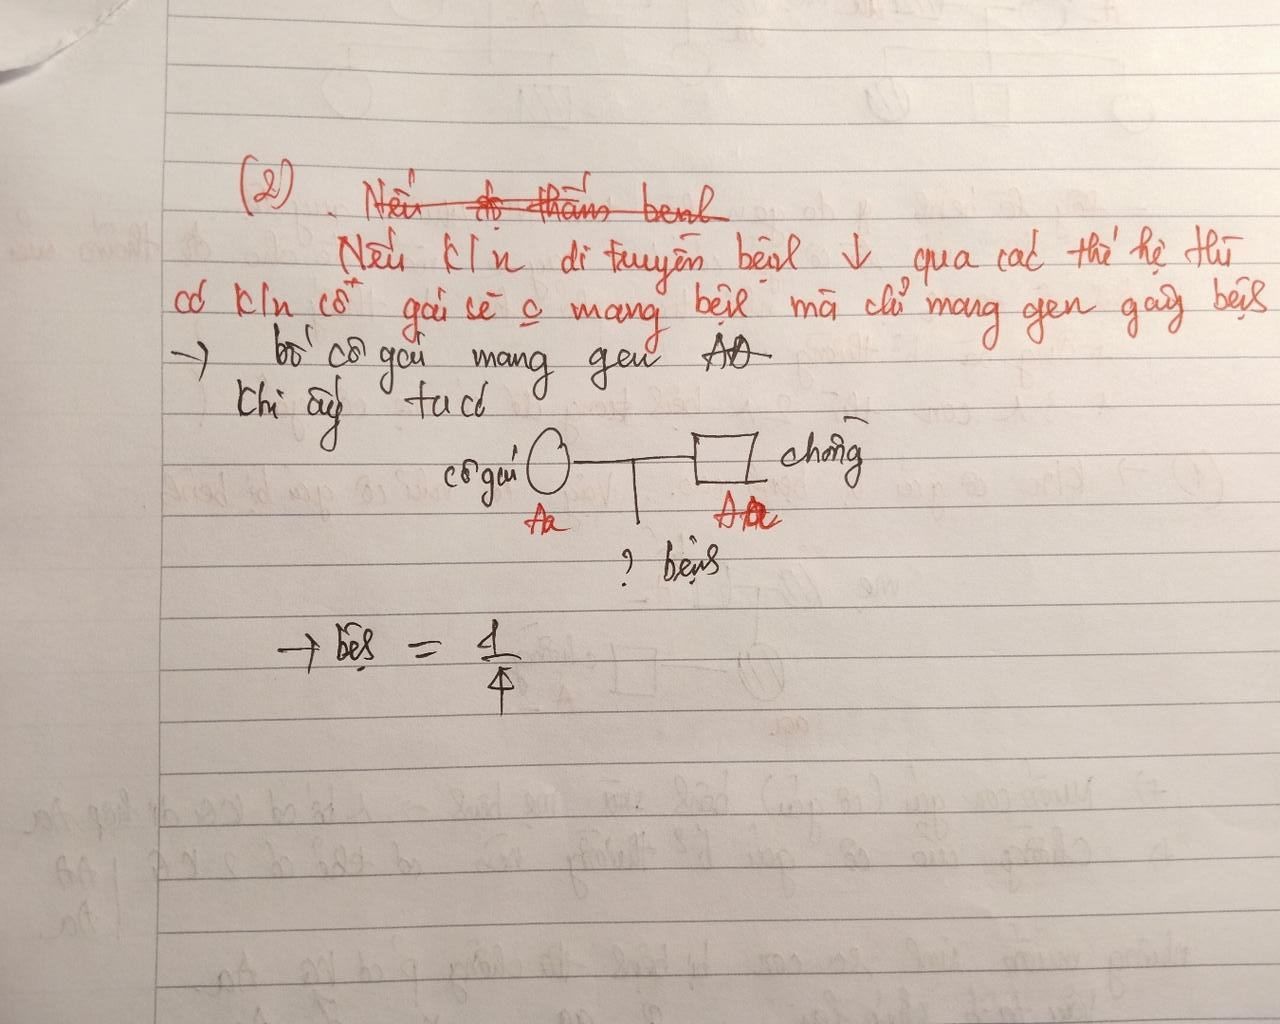 (2). Nếu độ thấm bệnh
Nếu k/n di truyền bệnh ↓ qua các thế hệ thì
có k/n cô gái sẽ o mang bệnh mà chỉ mang gen gây bệnh
→ bố cô gái mang gen AA
Khi ấy ta có
cô gái chồng
Aa Aa
? bệnh
→ bệnh = 1/4